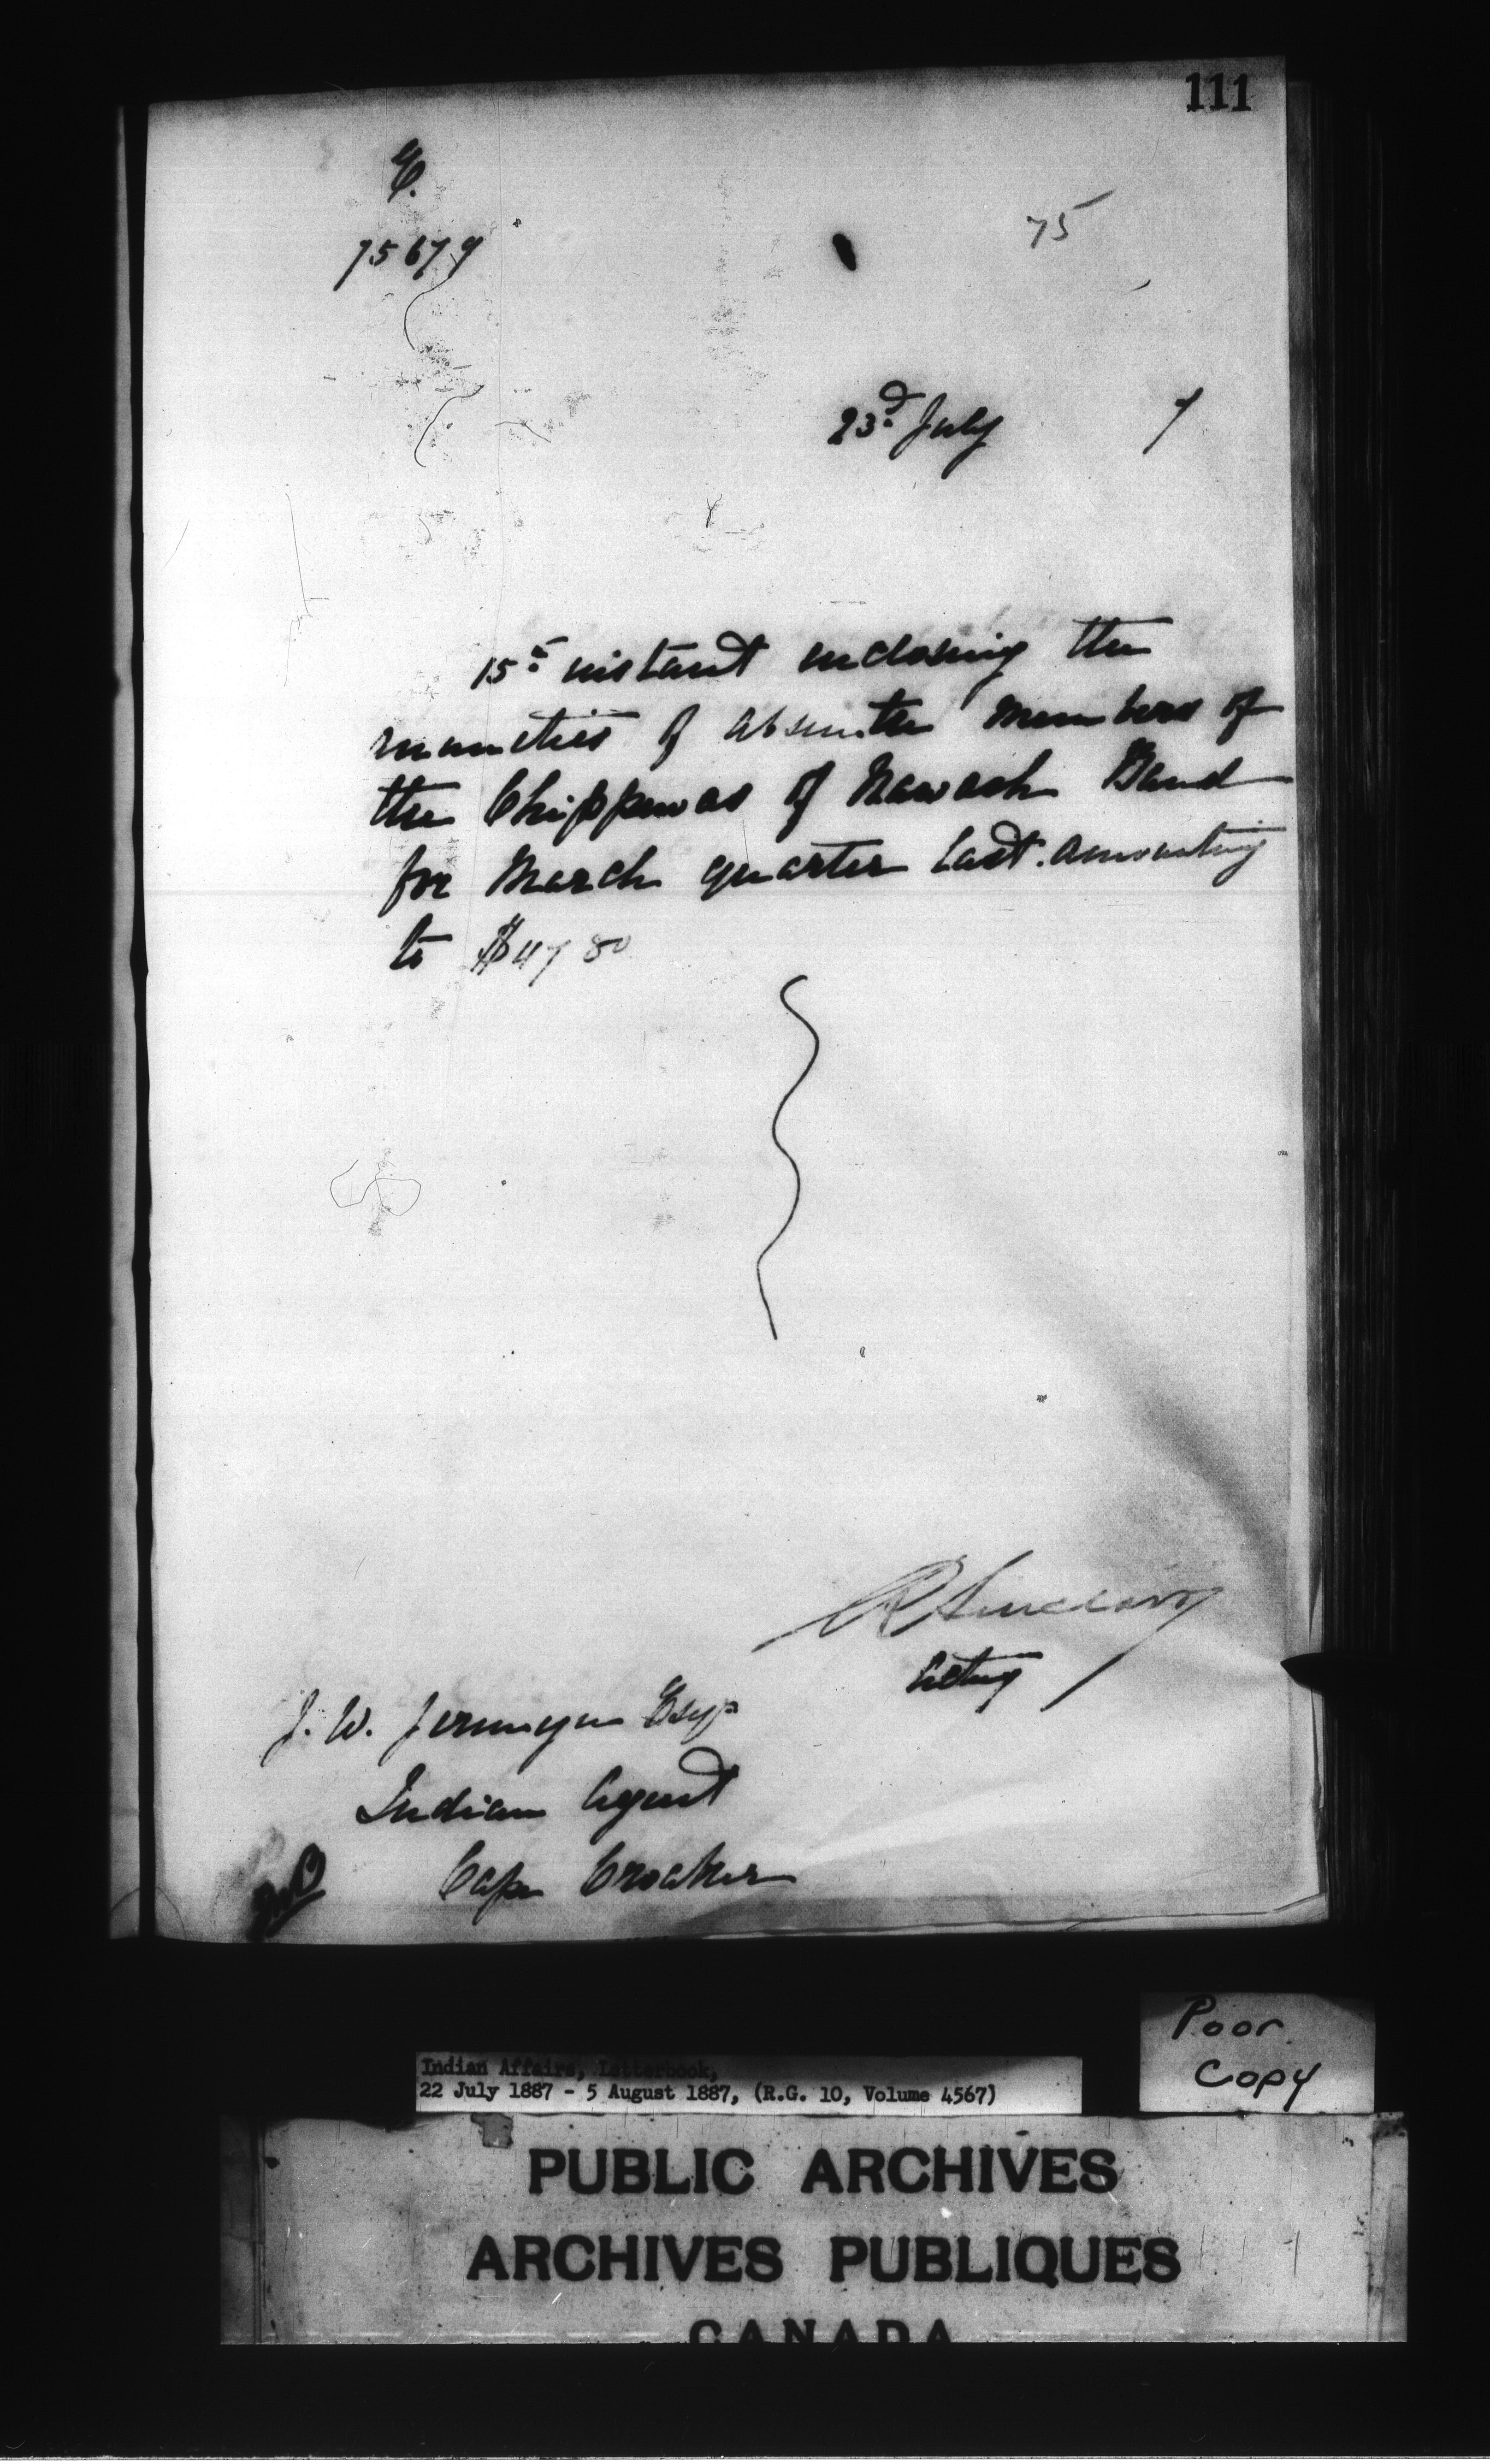 111
E.
75679
75
23d July 7
15th instant inclosing the
annuities of absentee members of
the Chippewas of Nawash Band
for March quarter last. amounting
to $47 80
R Sinclair
Acting
J. W. Jermyn Esqr
Indian Agent
Cape Croaker
Poor
Copy
Indian Affairs, Letterbook,
22 July 1887 - 5 August 1887, (R.G. 10, Volume 4567)
PUBLIC ARCHIVES
ARCHIVES PUBLIQUES
CANADA